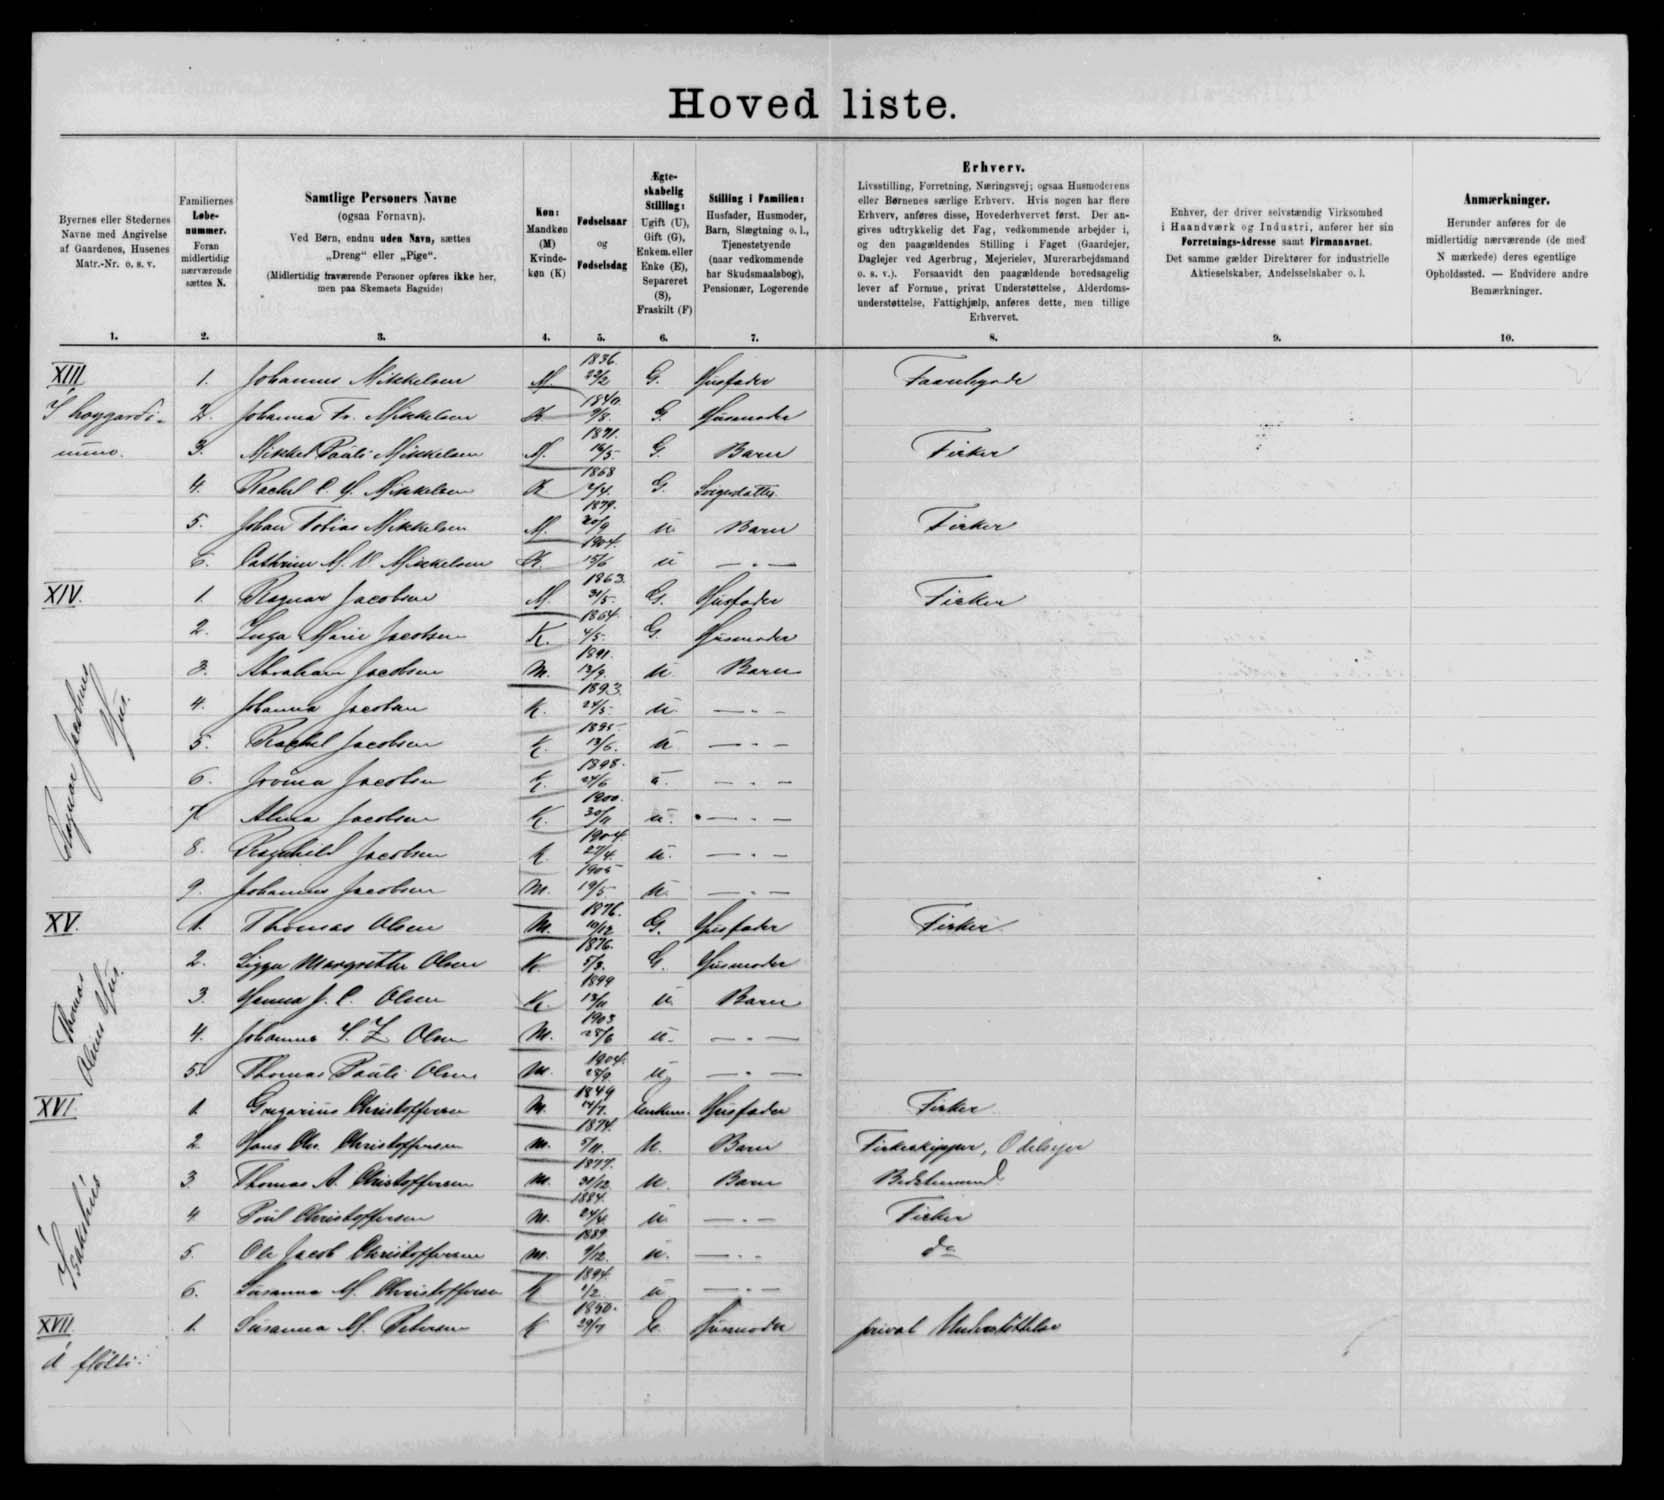 Hoved liste.
Byernes eller Stedernes
Navne med Angivelse
af Gaardenes, Husenes
Matr.-Nr. o. s. v.
Familiernes
Løbe-
nummer.
Foran
midlertidig
nærværende
sættes N.
Samtlige Personers Navne
(ogsaa Fornavn).
Ved Børn, endnu uden Navn, sættes
„Dreng“ eller „Pige“.
(Midlertidig fraværende Personer opføres ikke her,
men paa Skemaets Bagside)
Køn:
Mandkøn
(M)
Kvinde-
køn (K)
Fødselsaar
og
Fødselsdag
Ægte-
skabelig
Stilling:
Ugift (U),
Gift (G),
Enkem. eller
Enke (E),
Separeret
(S),
Fraskilt (F)
Stilling i Familien:
Husfader, Husmoder,
Barn, Slægtning o. l.,
Tjenestetyende
(naar vedkommende
har Skudsmaalsbog),
Pensionær, Logerende
Erhverv.
Livsstilling, Forretning, Næringsvej; ogsaa Husmoderens
eller Børnenes særlige Erhverv. Hvis nogen har flere
Erhverv, anføres disse, Hovederhvervet først. Der an-
gives udtrykkelig det Fag, vedkommende arbejder i,
og den paagældendes Stilling i Faget (Gaardejer,
Daglejer ved Agerbrug, Mejerielev, Murerarbejdsmand
o. s. v.). Forsaavidt den paagældende hovedsagelig
lever af Formue, privat Understøttelse, Alderdoms-
understøttelse, Fattighjælp, anføres dette, men tillige
Erhvervet.
Enhver, der driver selvstændig Virksomhed
i Haandværk og Industri, anfører her sin
Forretnings-Adresse samt Firmanavnet.
Det samme gælder Direktører for industrielle
Aktieselskaber, Andelsselskaber o. l.
Anmærkninger.
Herunder anføres for de
midlertidig nærværende (de med
N mærkede) deres egentlige
Opholdssted. — Endvidere andre
Bemærkninger.
1. 2. 3. 4. 5. 6. 7. 8. 9. 10.
XIII 1. Johannes Mikkelsen M. 1836. 22/2 G. Husfader
2. Johanna Fr. Mikkelsen K 1840. 9/8. G. Husmoder
3. Mikkel Pauli Mikkelsen M. 1871. G. Barn Fisker
4. Rachel C. Mikkelsen K 1868 2/4. G. Svigerdatter
5. Johan Tobias Mikkelsen M. 1879. 20/9 u. Barn Fisker
6. Cathrine M. V. Mikkelsen K 1904. 15/6 u — " —
XIV. 1. Ragnar Jacobsen M. 1863. 31/5. G. Husfader Fisker
2. Inga Marie Jacobsen K. 1864. 4/5. G. Husmoder
Ragnar Jacobsens Hus.
3. Abraham Jacobsen M. 1891. 13/9. u. Barn
4. Johanna Jacobsen K. 1893. 24/5. u. — " —
5. Rachel Jacobsen K. 1895. 13/6. u — " —
6. Jacobsen K. 1898. 24/6 u. — " —
7. Alma Jacobsen K. 1900. 30/11 u. — " —
8. Ragnhild Jacobsen K. 1904. 27/4. u. — " —
9. Johannes Jacobsen M. 1905 19/5. u. — " —
XV. 1. Thomas Olsen M. 1876. 10/12 G. Husfader Fisker
2. Sigga Margrethe Olsen K 1876. 5/3. G. Husmoder
Thomas Olsens Hus.
3. Hanna J. C. Olsen K. 1899 13/11 u. Barn
4. Johannes Olsen M. 1903 28/6 u. — " —
5. Thomas Pauli Olsen M. 1904. 28/9. u. — " —
XVI 1. Gregarius Christoffersen M. 1849 14/7. Enkem. Husfader Fisker
2. Hans Chr. Christoffersen M. 1874. 5/11. U. Barn Fiskeskipper, Odelsejer
3. Thomas A. Christoffersen M. 1877. 31/12. u. Barn Bedstemand
4. Poul Christoffersen M. 1884. 24/4. u. — " — Fisker
5. Ole Jacob Christoffersen M. 1889. 9/12. u. — " — do
6. Susanna M. Christoffersen K 1894. 2/2. u — " —
XVII 1. Susanna M. Petersen K 1850. 29/7 E. Husmoder privat Understøttelse